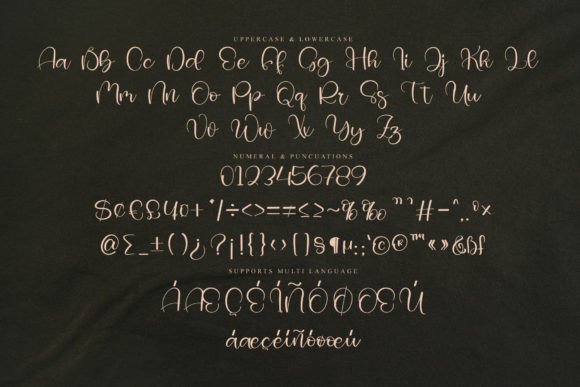 UPPERCASE & LOWERCASE
Aa Bb Cc Dd Ee Ff Gg Hh Ii Jj Kk Ll
Mm Nn Oo Pp Qq Rr Ss Tt Uu
Vv Ww Xx Yy Zz
NUMERAL & PUNCUATIONS
0123456789
$¢€£¥0+*/÷<>=≠≤≥~%‰"^#-
@Σ_±()¿?¡!{}‹›[]§¶µ:;'©®™«»&
SUPPORTS MULTI LANGUAGE
ÁÆÇÉÍÑÓØŒÚ
áæçéíñóøœú